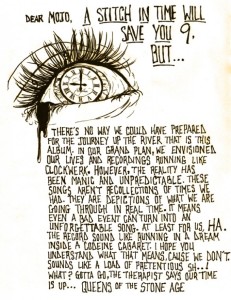 DEAR MOJO, A STITCH IN TIME WILL
SAVE YOU 9.
BUT...
THERE'S NO WAY WE COULD HAVE PREPARED
FOR THE JOURNEY UP THE RIVER THAT IS THIS
ALBUM. IN OUR GRAND PLAN, WE ENVISIONED
OUR LIVES AND RECORDINGS RUNNING LIKE
CLOCKWERK. HOWEVER, THE REALITY HAS
BEEN MANIC AND UNPREDICTABLE. THESE
SONGS AREN'T RECOLLECTIONS OF TIMES WE
HAD. THEY ARE DEPICTIONS OF WHAT WE ARE
GOING THROUGH IN REAL TIME. IT MEANS
EVEN A BAD EVENT CAN TURN INTO AN
UNFORGETTABLE SONG. AT LEAST FOR US, HA.
THE RECORD SOUND LIKE RUNNING IN A DREAM
INSIDE A CODEINE CABARET. I HOPE YOU
UNDERSTAND WHAT THAT MEANS, CAUSE WE DON'T.
SOUNDS LIKE A LOAD OF PRETENTIOUS SH..!
WHAT? GOTTA GO, THE THERAPIST SAYS OUR TIME
IS UP... QUEENS OF THE STONE AGE